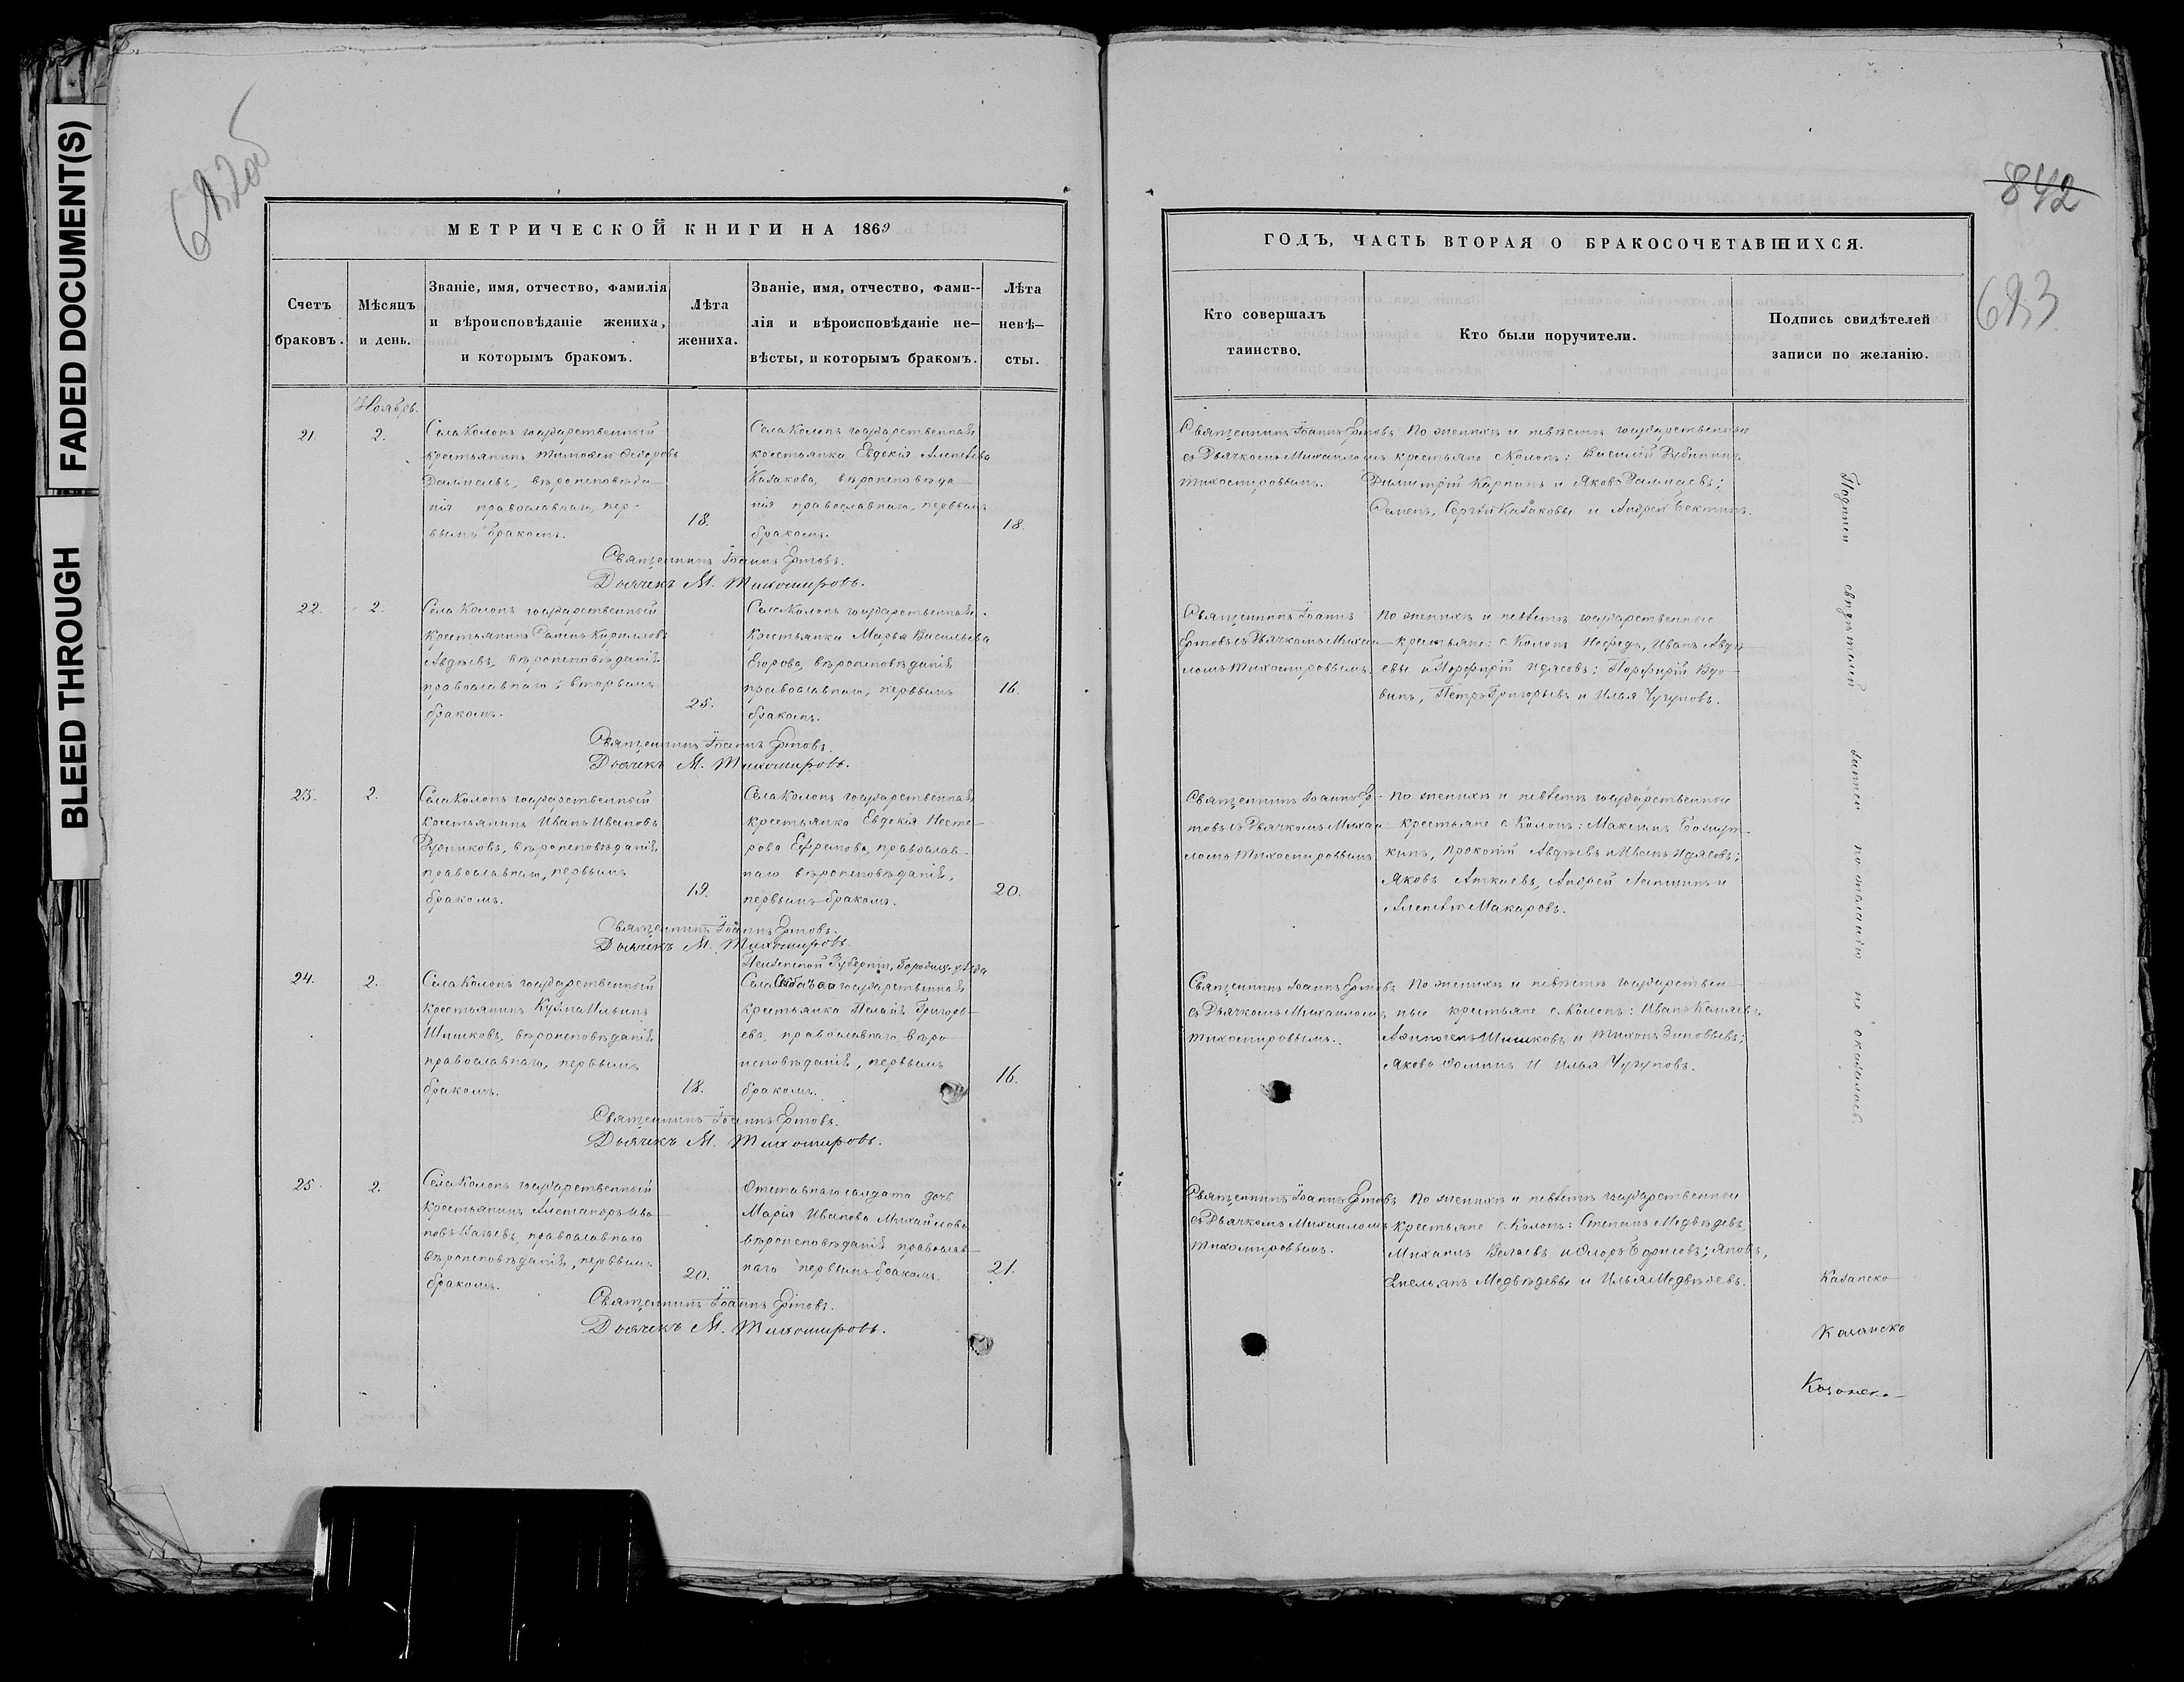 FADED DOCUMENT(S)
BLEED THROUGH
МЕТРИЧЕСКОЙ КНИГИ НА 1869
Счетъ
браковъ.
Мѣсяцъ
и день.
Званіе, имя, отчество, фамилія
и вѣроисповѣданіе жениха,
и которымъ бракомъ.
Лѣта
жениха.
Званіе, имя, отчество, фами--
лія и вѣроисповѣданіе не—
вѣсты, и которымъ бракомъ.
Лѣта
невѣ—
сты.
Ноябрь.
21. 2.
Села Колопъ государственный
крестьянинъ Тимофей Ѳедоровъ
вѣроисповѣда
нія православнаго, пер-
вымъ бракомъ.
18.
Села Колопъ государственная
крестьянка Евдокія Алексѣева
Казакова, вѣроисповѣда
нія православнаго, первымъ
бракомъ.
18.
Священникъ Іоаннъ
Дьячекъ М. Тихомировъ.
22. 2.
Села Колопъ государственный
крестьянинъ Кириловъ
Авдѣевъ, вѣроисповѣданія
православнаго, вторымъ
бракомъ.
25.
Села Колопъ государственная
крестьянка Марья Васильева
Егорова, вѣроисповѣданія
православнаго, первымъ
бракомъ.
16.
Священникъ Іоаннъ
Дьячекъ М. Тихомировъ.
23. 2.
Села Колопъ государственный
крестьянинъ Иванъ Ивановъ
вѣроисповѣданія
православнаго, первымъ
бракомъ.
19.
Села Колопъ государственная
крестьянка Евдокія Несте—
рова Ефремова, православ—
наго вѣроисповѣданія,
первымъ бракомъ.
20.
Священникъ Іоаннъ
Дьячекъ М. Тихомировъ
Пензенской Губерніи, уѣзда
24. 2.
Села Колопъ государственный
крестьянинъ Кузма Ильинъ
Шишковъ, вѣроисповѣданія
православнаго, первымъ
бракомъ.
18.
Села государственная
крестьянка Григорь—
ева, православнаго вѣро
исповѣданія, первымъ
бракомъ.
16.
Священникъ Іоаннъ
Дьячекъ М. Тихомировъ.
25. 2.
Села Колопъ государственный
крестьянинъ Александръ Ива
новъ православнаго
вѣроисповѣданія, первымъ
бракомъ.
20.
Отставнаго солдата дочь
Марія Иванова Михайлова
вѣроисповѣданія православ—
наго первымъ бракомъ.
21.
Священникъ Іоаннъ
Дьячекъ М. Тихомировъ.
842
683
ГОДЪ, ЧАСТЬ ВТОРАЯ О БРАКОСОЧЕТАВШИХСЯ.
Кто совершалъ
таинство.
Кто были поручители.
Подпись свидѣтелей
записи по желанію.
Священникъ Іоаннъ
съ Дьячкомъ Михаиломъ
Тихомировымъ.
По женихѣ и невѣстѣ государственные
крестьяне с. Колопъ: Василій
Димитрій Карпинъ и Яковъ
Семенъ, Сергѣй Казаковы и Андрей Бектинъ.
Священникъ Іоаннъ
съ Дьячкомъ Михаи—
ломъ Тихомировымъ.
По женихѣ и невѣстѣ государственные
крестьяне: с. Колопъ Иванъ Авдѣ
евы и Порфирій Идясовъ; Порфирій Вдо—
винъ, Петръ Григорьевъ и Илья Чугуновъ.
Священникъ Іоаннъ
съ Дьячкомъ Михаи
ломъ Тихомировымъ
По женихѣ и невѣстѣ государственные
крестьяне с. Колопъ: Максимъ
кинъ, Прокопій Авдѣевъ и Иванъ Идясовъ;
Яковъ Андрей и
Алексѣй Макаровъ.
Священникъ Іоаннъ
съ Дьячкомъ Михаиломъ
Тихомировымъ.
По женихѣ и невѣстѣ государствен
ные крестьяне с. Колопъ: Иванъ
Шишковъ и Тихонъ Зиновьевъ;
Яковъ Ѳоминъ и Илья Чугуновъ.
Священникъ Іоаннъ
съ Дьячкомъ Михаиломъ
Тихомировымъ.
По женихѣ и невѣстѣ государственные
крестьяне с. Колопъ: Степанъ Медвѣдевъ,
Михаилъ и Яковъ,
Емельянъ Медвѣдевы и Илья Медвѣдевъ.
Подписи свидѣтелей записи по желанію не оказалось.
Казанско
Казанско
Казанско